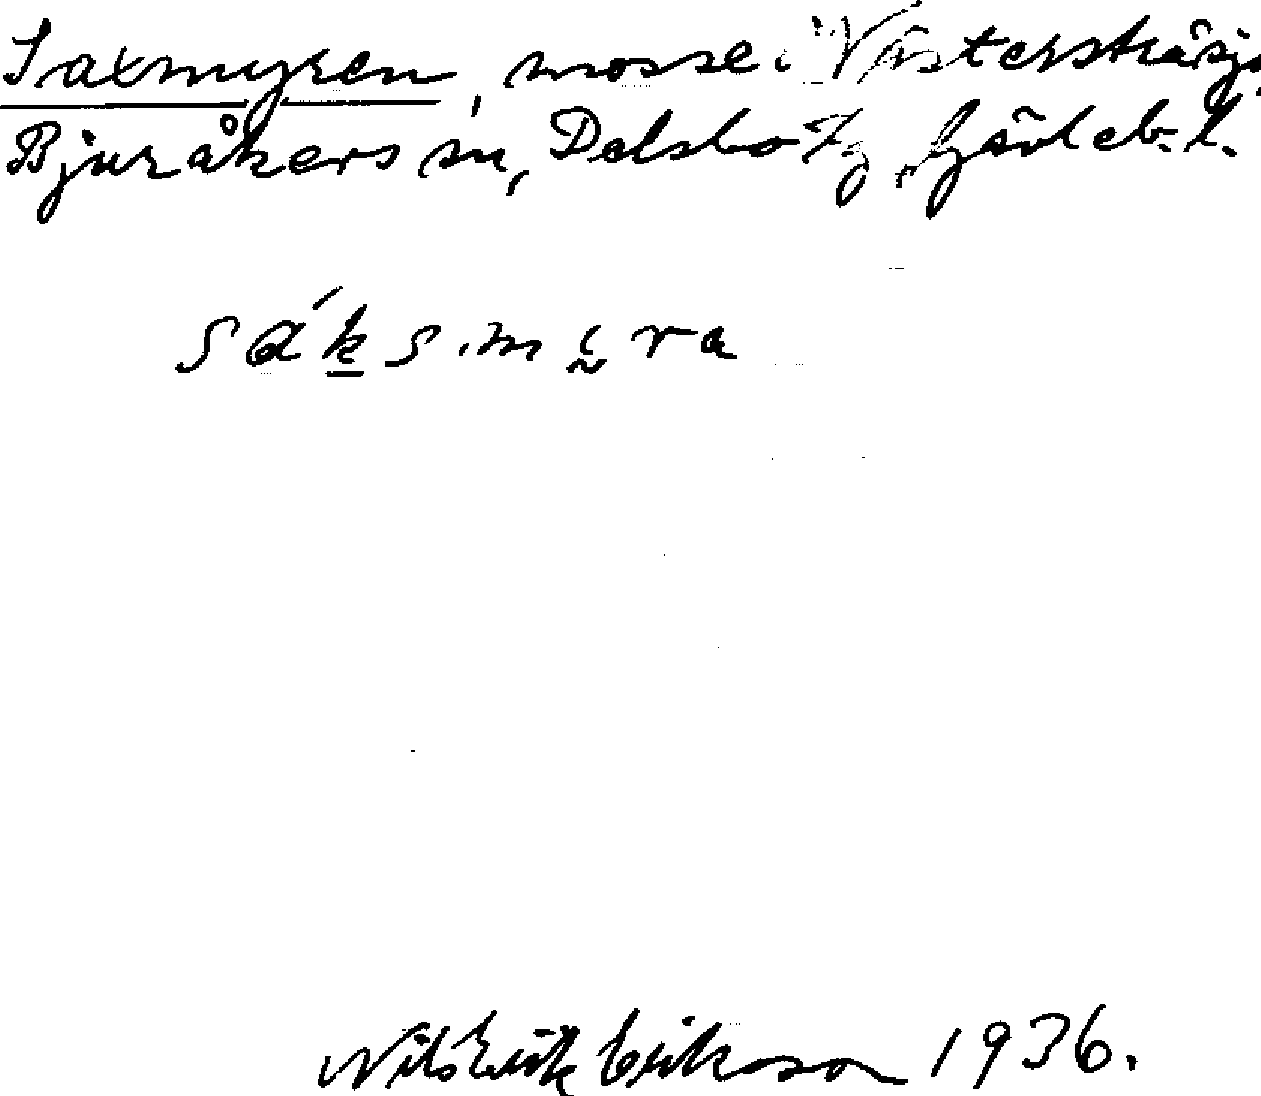 Saxmyren, mosse i Västersträsjö
Bjuråkers sn, Delsbo tg, Gävleb. l.
Nils Erik Erikson 1936.